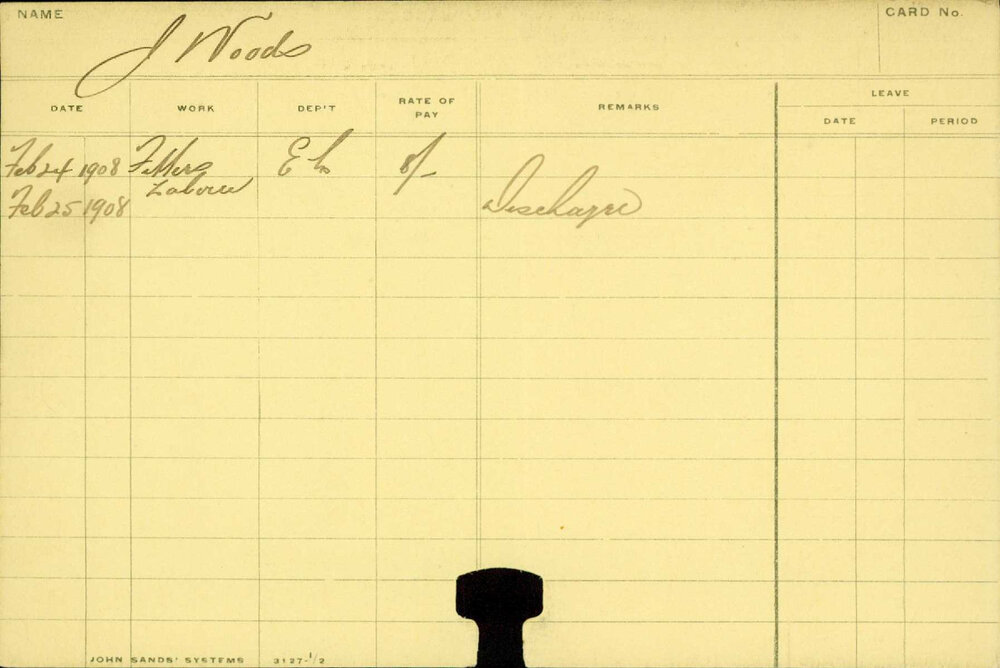 NAME
CARD No.
J Woods
DATE WORK DEP'T RATE OF PAY REMARKS LEAVE
DATE PERIOD
Feb 24 1908 Fitters 8/-
Labour
Feb 25 1908 Discharge
JOHN SANDS' SYSTEMS 3127-1/2